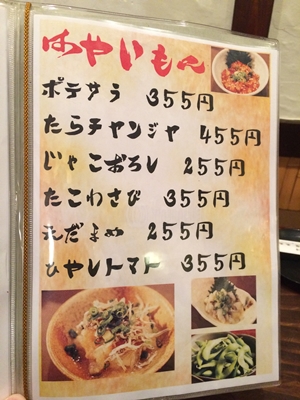 はやいもん
ポテサラ 355円
たらチャンジャ 455円
じゃこおろし 255円
たこわさび 355円
えだまめ 255円
ひやしトマト 355円